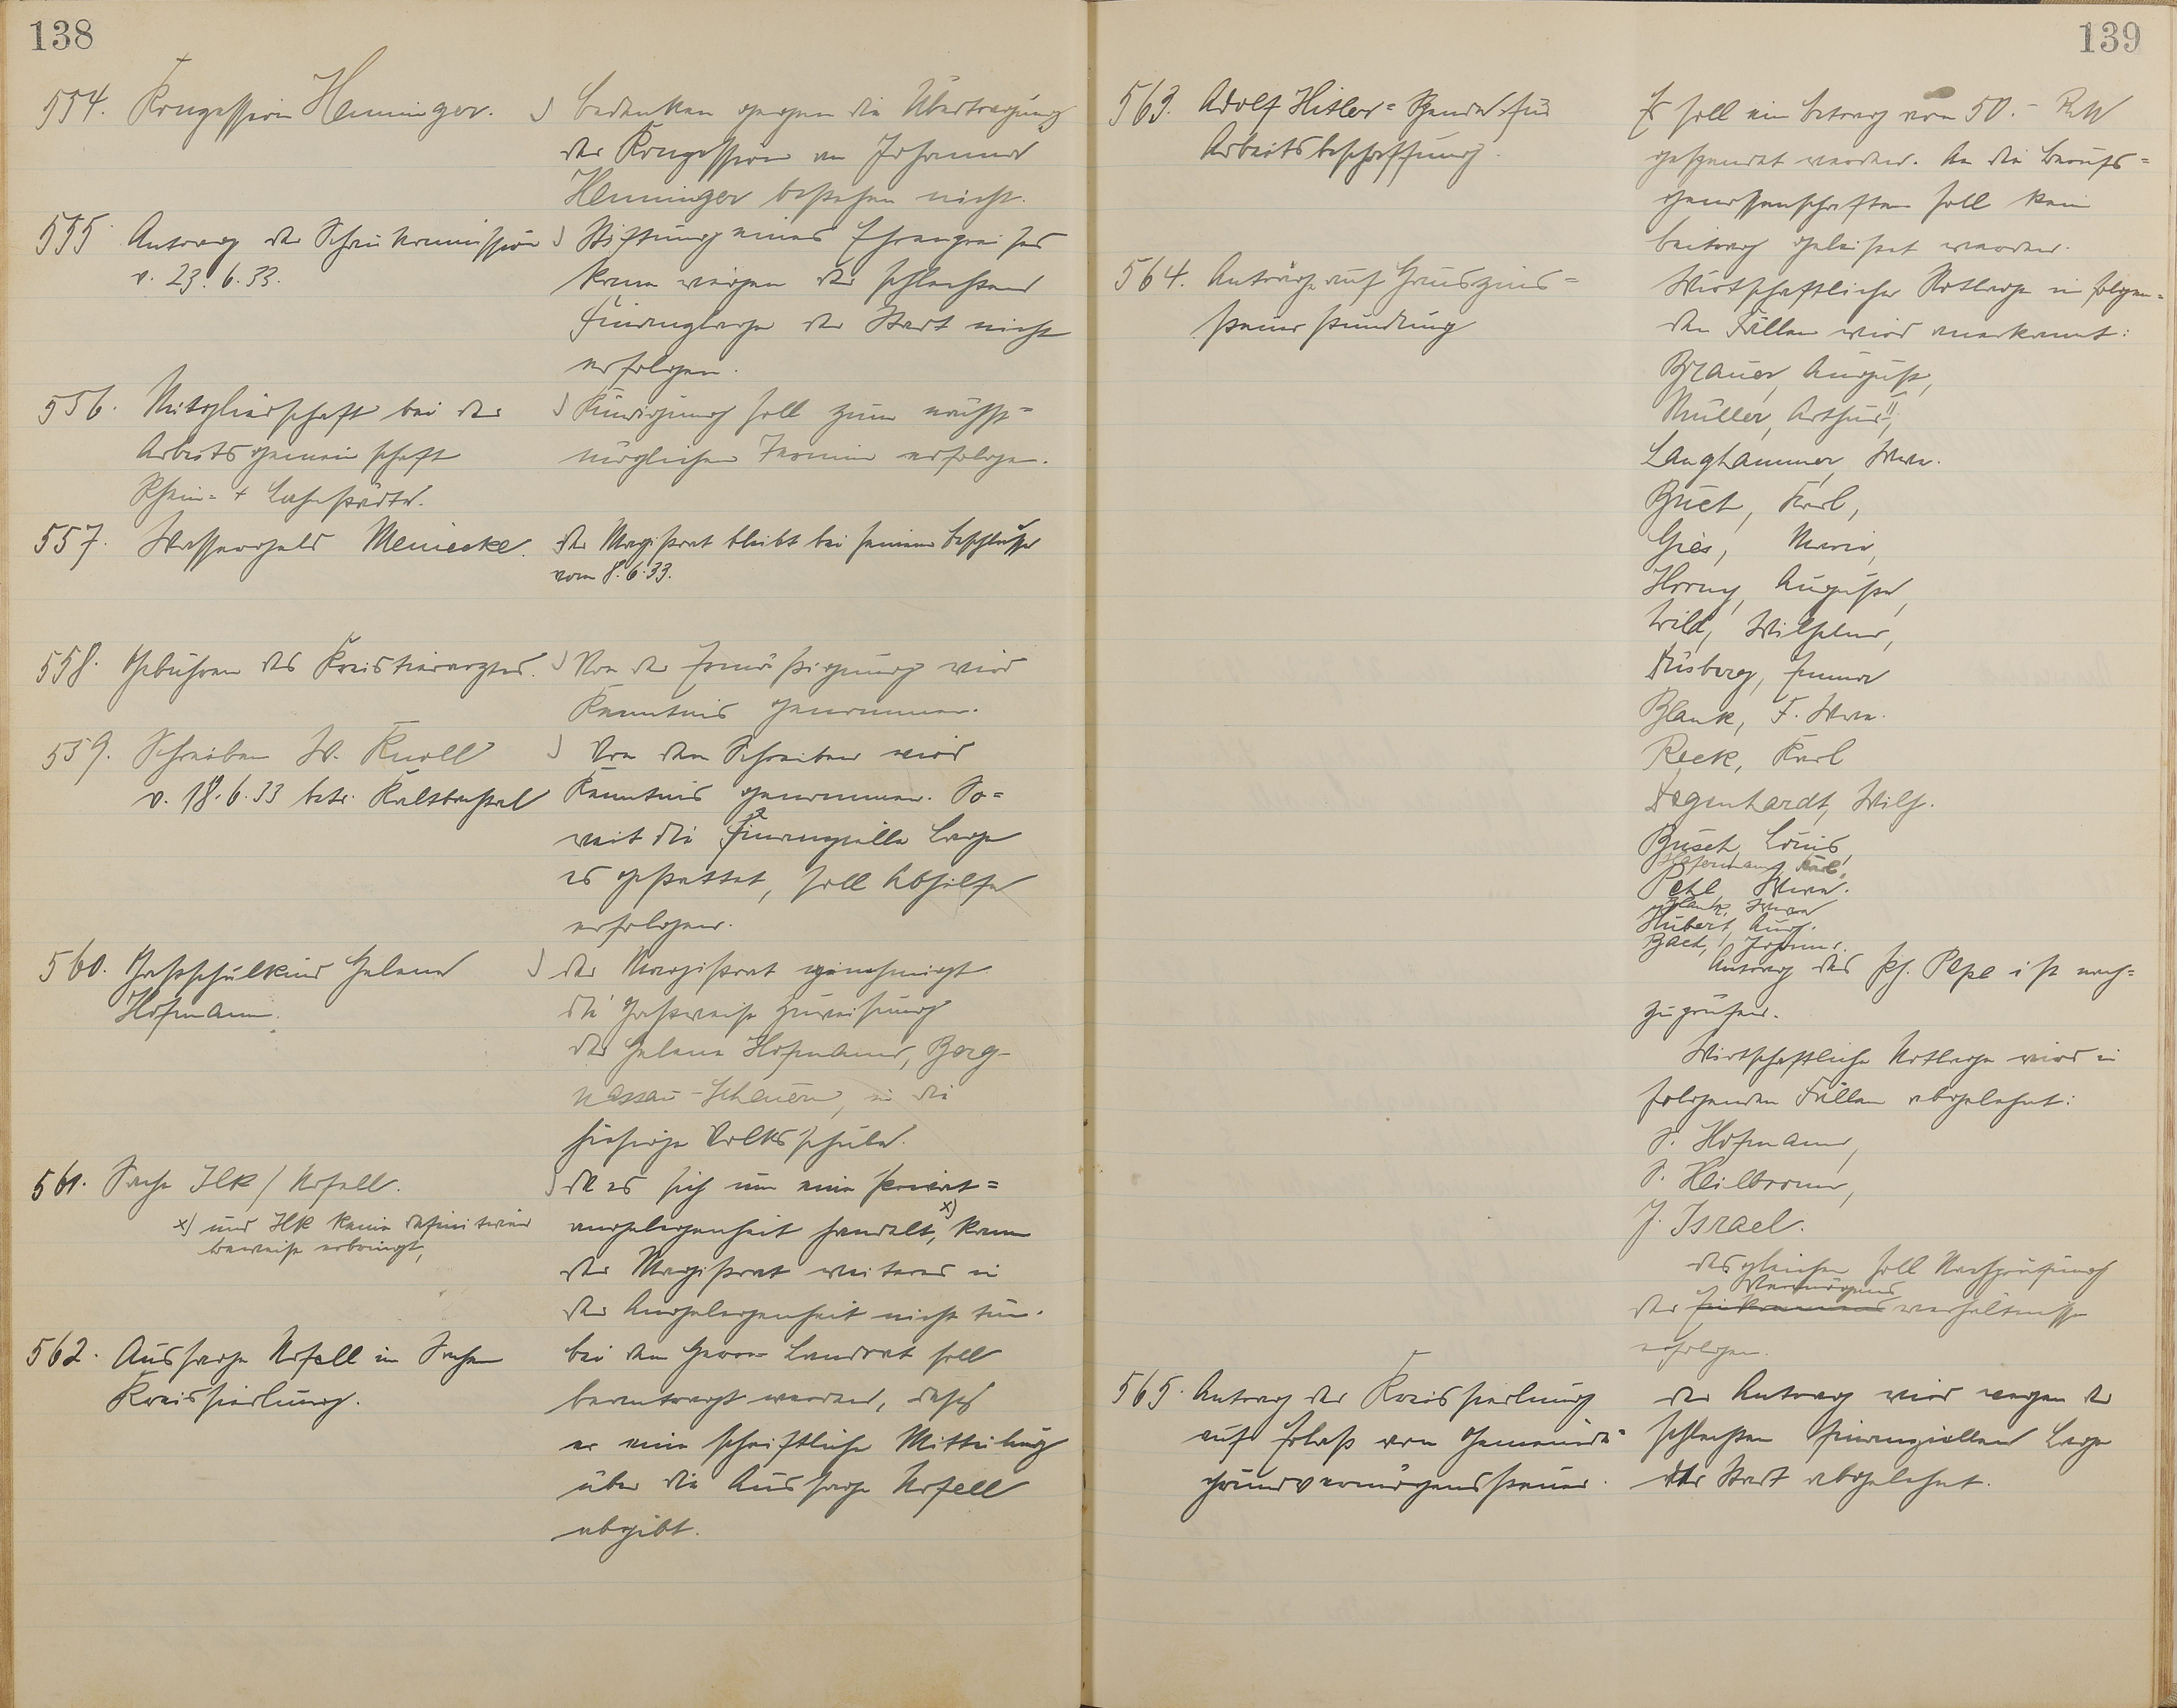 138
554. Konzession Henninger.
) Bedenken gegen die Übertragung
der Konzession an Johannes
Henninger bestehen nicht.
555 Antrag der Schaukommission
v. 23.6.33.
) Stiftung eines Ehrenpreises
kann wegen der schlechten
Finanzlage der Stadt nicht
erfolgen.
556. Mitgliedschaft bei der
Arbeitsgemeinschaft
Rhein- + Lahnstädte.
) Kündigung soll zum nächst=
möglichen Termin erfolgen.
557. Wassergeld Meniecke.
Der Magistrat bleibt bei seinem Beschlusse
vom 8.6.33.
558. Gebühren des Kreistierarztes.
) Von der Ermäßigung wird
Kenntnis genommen.
559. Schreiben W. Knoll
v. 18.6.33 betr. Kaltbachtal
) Von dem Schreiben wird
Kenntnis genommen. So=
weit die finanzielle Lage
es gestattet, soll Abhilfe
erfolgen.
560. Gastschulkind Helene
Hofmann.
) Der Magistrat genehmigt
die gastweise Zuweisung
der Helene Hofmann, Berg-
nassau-Scheuern, in die
hiesige Volksschule.
561. Sache Ilk / Unfell.
x) und Ilk keine definitiven
Beweise erbringt,
) Da es sich um eine Privat=
angelegenheit handelt, x) kann
der Magistrat weiteres in
der Angelegenheit nicht tun.
562. Aussage Unfell in Sachen
Kreissiedlung.
Bei dem Herrn Landrat soll
beantragt werden, dass
er eine schriftliche Mitteilung
über die Aussage Unfell
abgibt.
139
563. Adolf Hitler=Spende für
Arbeitsbeschaffung.
Es soll ein Betrag von 50.- RM
gespendet werden. An die Berufs=
genossenschaften soll kein
Beitrag geleistet werden.
564. Anträge auf Hauszins=
steuerstundung
Wirtschaftliche Notlage in folgen=
den Fällen wird anerkannt:
Brauer, August,
Müller, Arthur II,
Langhammer, Wwe.
Buch, Karl,
Gies, Maria,
Horny, Auguste,
Wild, Wilhelm,
Düsberg, Emma
Blank, F. Wwe.
Reck, Karl
Degenhardt, Wilh.
Busch, Louis,
Hofmann, Karl,
Pohl, Wwe.
Hubert, Aug.
Bach, Johann.
Antrag des Pape ist nach=
zuprüfen.
Wirtschaftliche Notlage wird in
folgenden Fällen abgelehnt:
S. Hofmann,
S. Heilbronn,
J. Israel.
Desgleichen soll Nachprüfung
Vermögens
der Einkommensverhältnisse
erfolgen.
565. Antrag der Kreissiedlung
auf Erlaß von Gemeinde=
grundvermögenssteuer.
Der Antrag wird wegen der
schlechten finanziellen Lage
der Stadt abgelehnt.